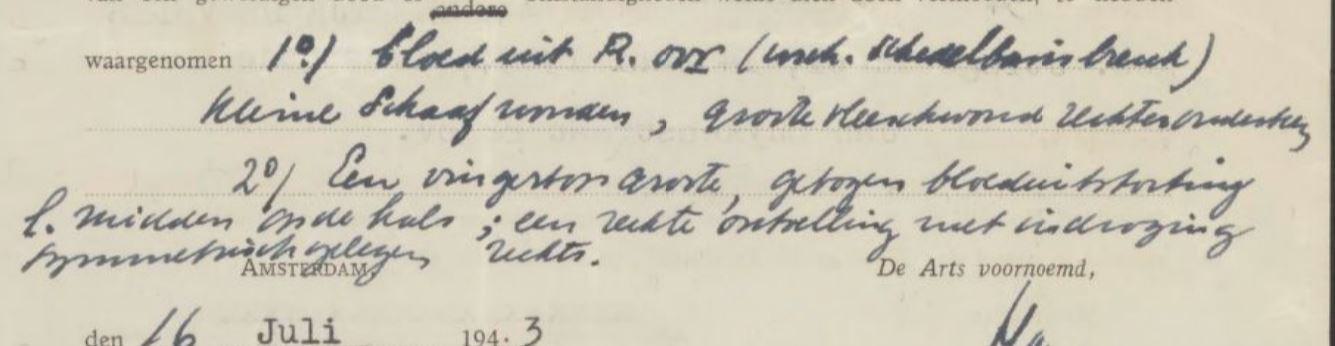 andere
waargenomen 1º/ bloed uit R. oor (wsch. schedelbasisbreuk)
kleine schaafwonden, groote vleeschwond rechteronderbeen
2º/ Een vingertop groote, gebogen bloeduitstorting
l. midden op de hals; een rechte ontvelling met indroging
symmetrisch gelegen rechts.
AMSTERDAM, De Arts voornoemd,
den 16 Juli 194.3